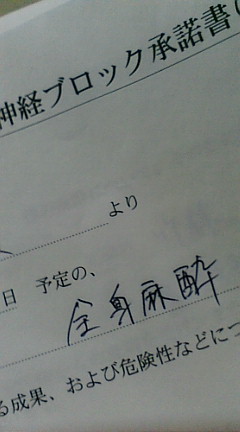 神経ブロック承諾書(
より
日 予定の、
全身麻酔
る成果、および危険性などにつ